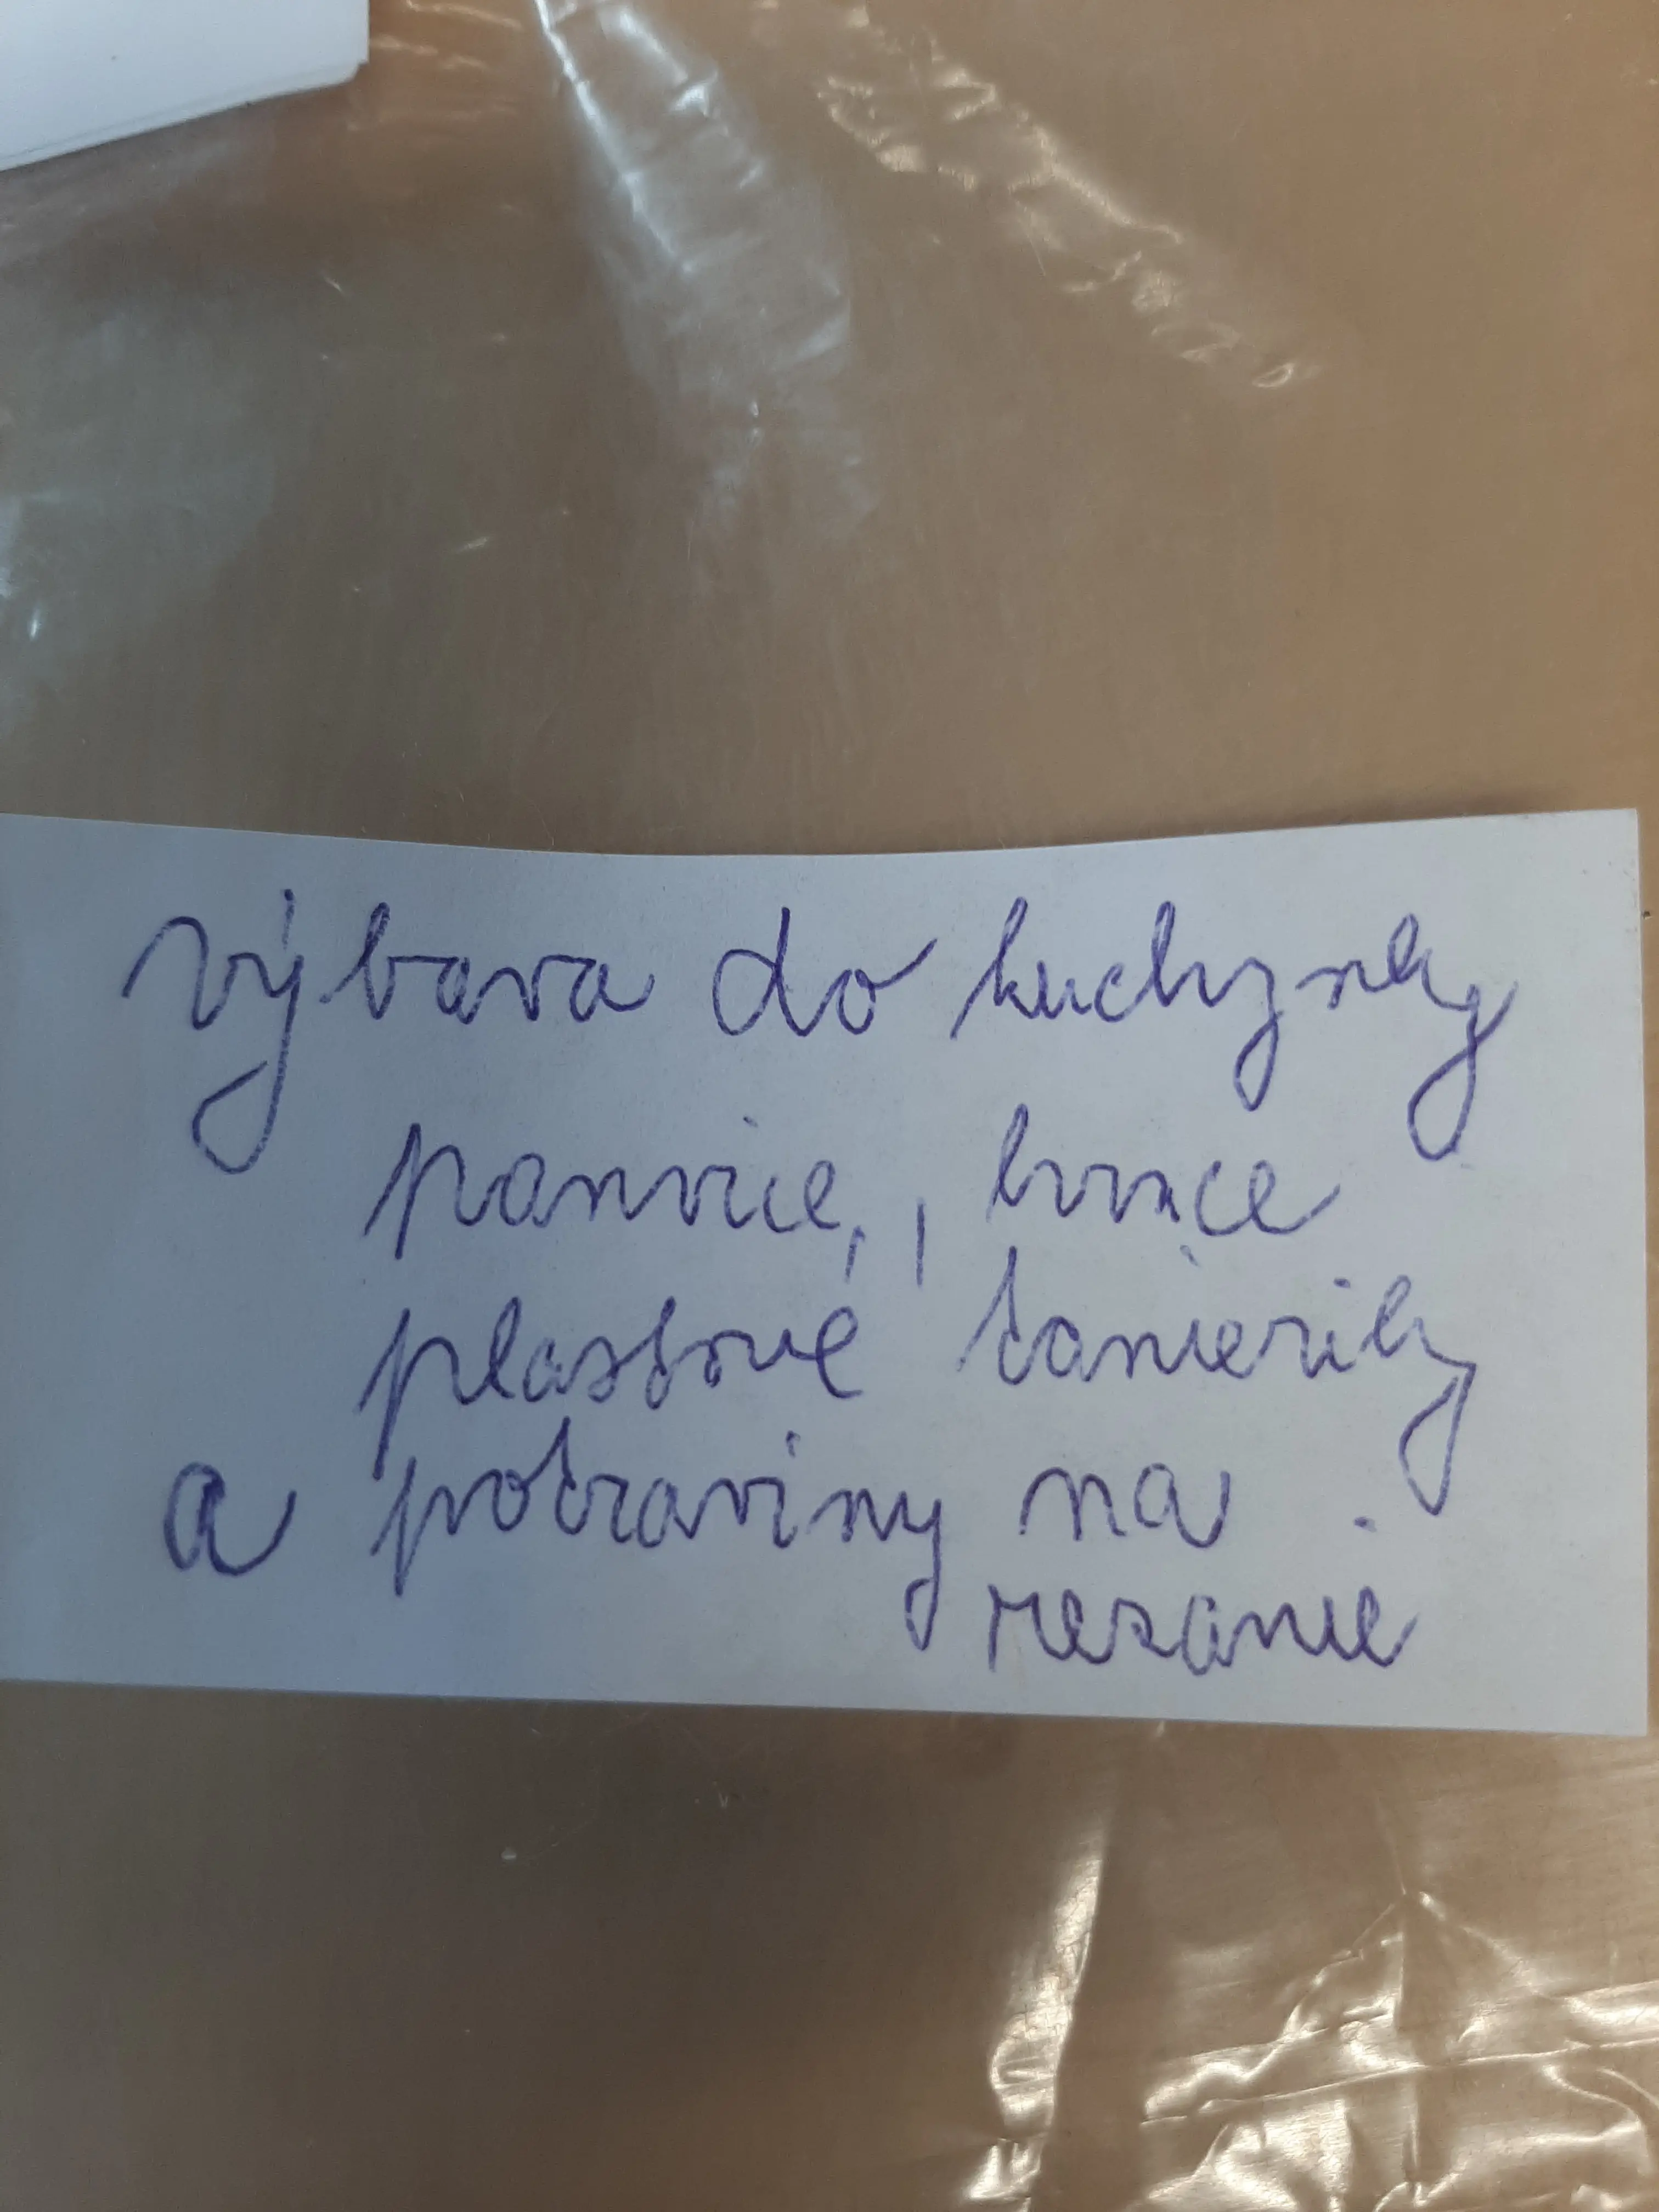 výbava do kuchynky
panvice, , hrnce
plastové tanieriky
a potraviny na
rezanie